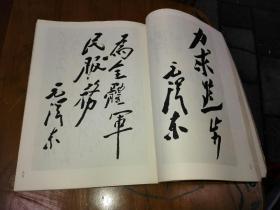 力求進步
毛澤东
為全體軍
民服務
毛澤东